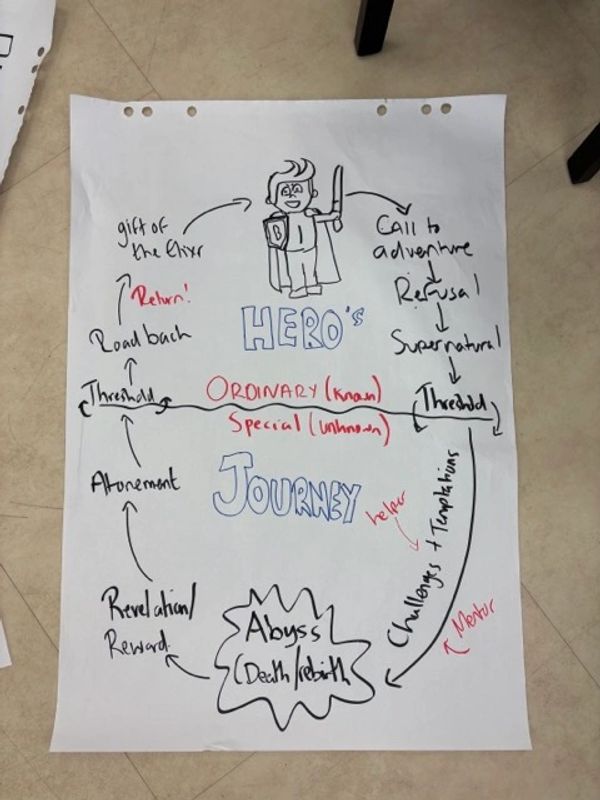 B
Call to
adventure
Refusal
Supernatural
Threshold
HERO's
ORDINARY (known)
Special (unknown)
JOURNEY
helper
Challenges + Temptations
Mentor
Abyss
(Death/rebirth
Revelation/
Reward
Atonement
Threshold
Road back
Return!
gift of
the Elixr